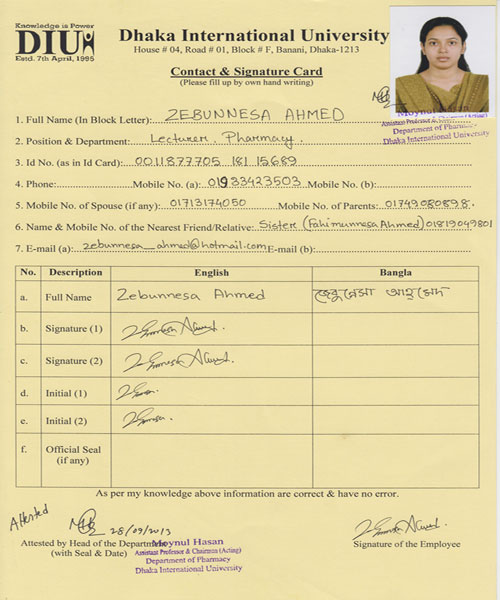 Knowledge is Power
DIU
Estd. 7th April, 1995
Dhaka International University
House # 04, Road # 01, Block # F, Banani, Dhaka-1213
Contact & Signature Card
(Please fill up by own hand writing)
Moynul Hasan
Assistant Professor & Chairman (Acting)
Department of Pharmacy
Dhaka International University
1. Full Name (In Block Letter): ZEBUNNESA AHMED
2. Position & Department: Lecturer, Pharmacy.
3. Id No. (as in Id Card): 0011877705 181 15689
4. Phone: Mobile No. (a): 01933423503 Mobile No. (b):
5. Mobile No. of Spouse (if any): 01713174050 Mobile No. of Parents: 01749080898.
6. Name & Mobile No. of the Nearest Friend/Relative: Sister (Fahimunnesa Ahmed) 01819049801
7. E-mail (a): zebunnesa_ahmed@hotmail.com E-mail (b):
No. Description English Bangla
a. Full Name Zebunnesa Ahmed জেবুন্নেসা আহমেদ
b. Signature (1)
c. Signature (2)
d. Initial (1)
e. Initial (2)
f. Official Seal (if any)
As per my knowledge above information are correct & have no error.
Attested
28/09/2013
Attested by Head of the Department
(with Seal & Date)
Moynul Hasan
Assistant Professor & Chairman (Acting)
Department of Pharmacy
Dhaka International University
Signature of the Employee